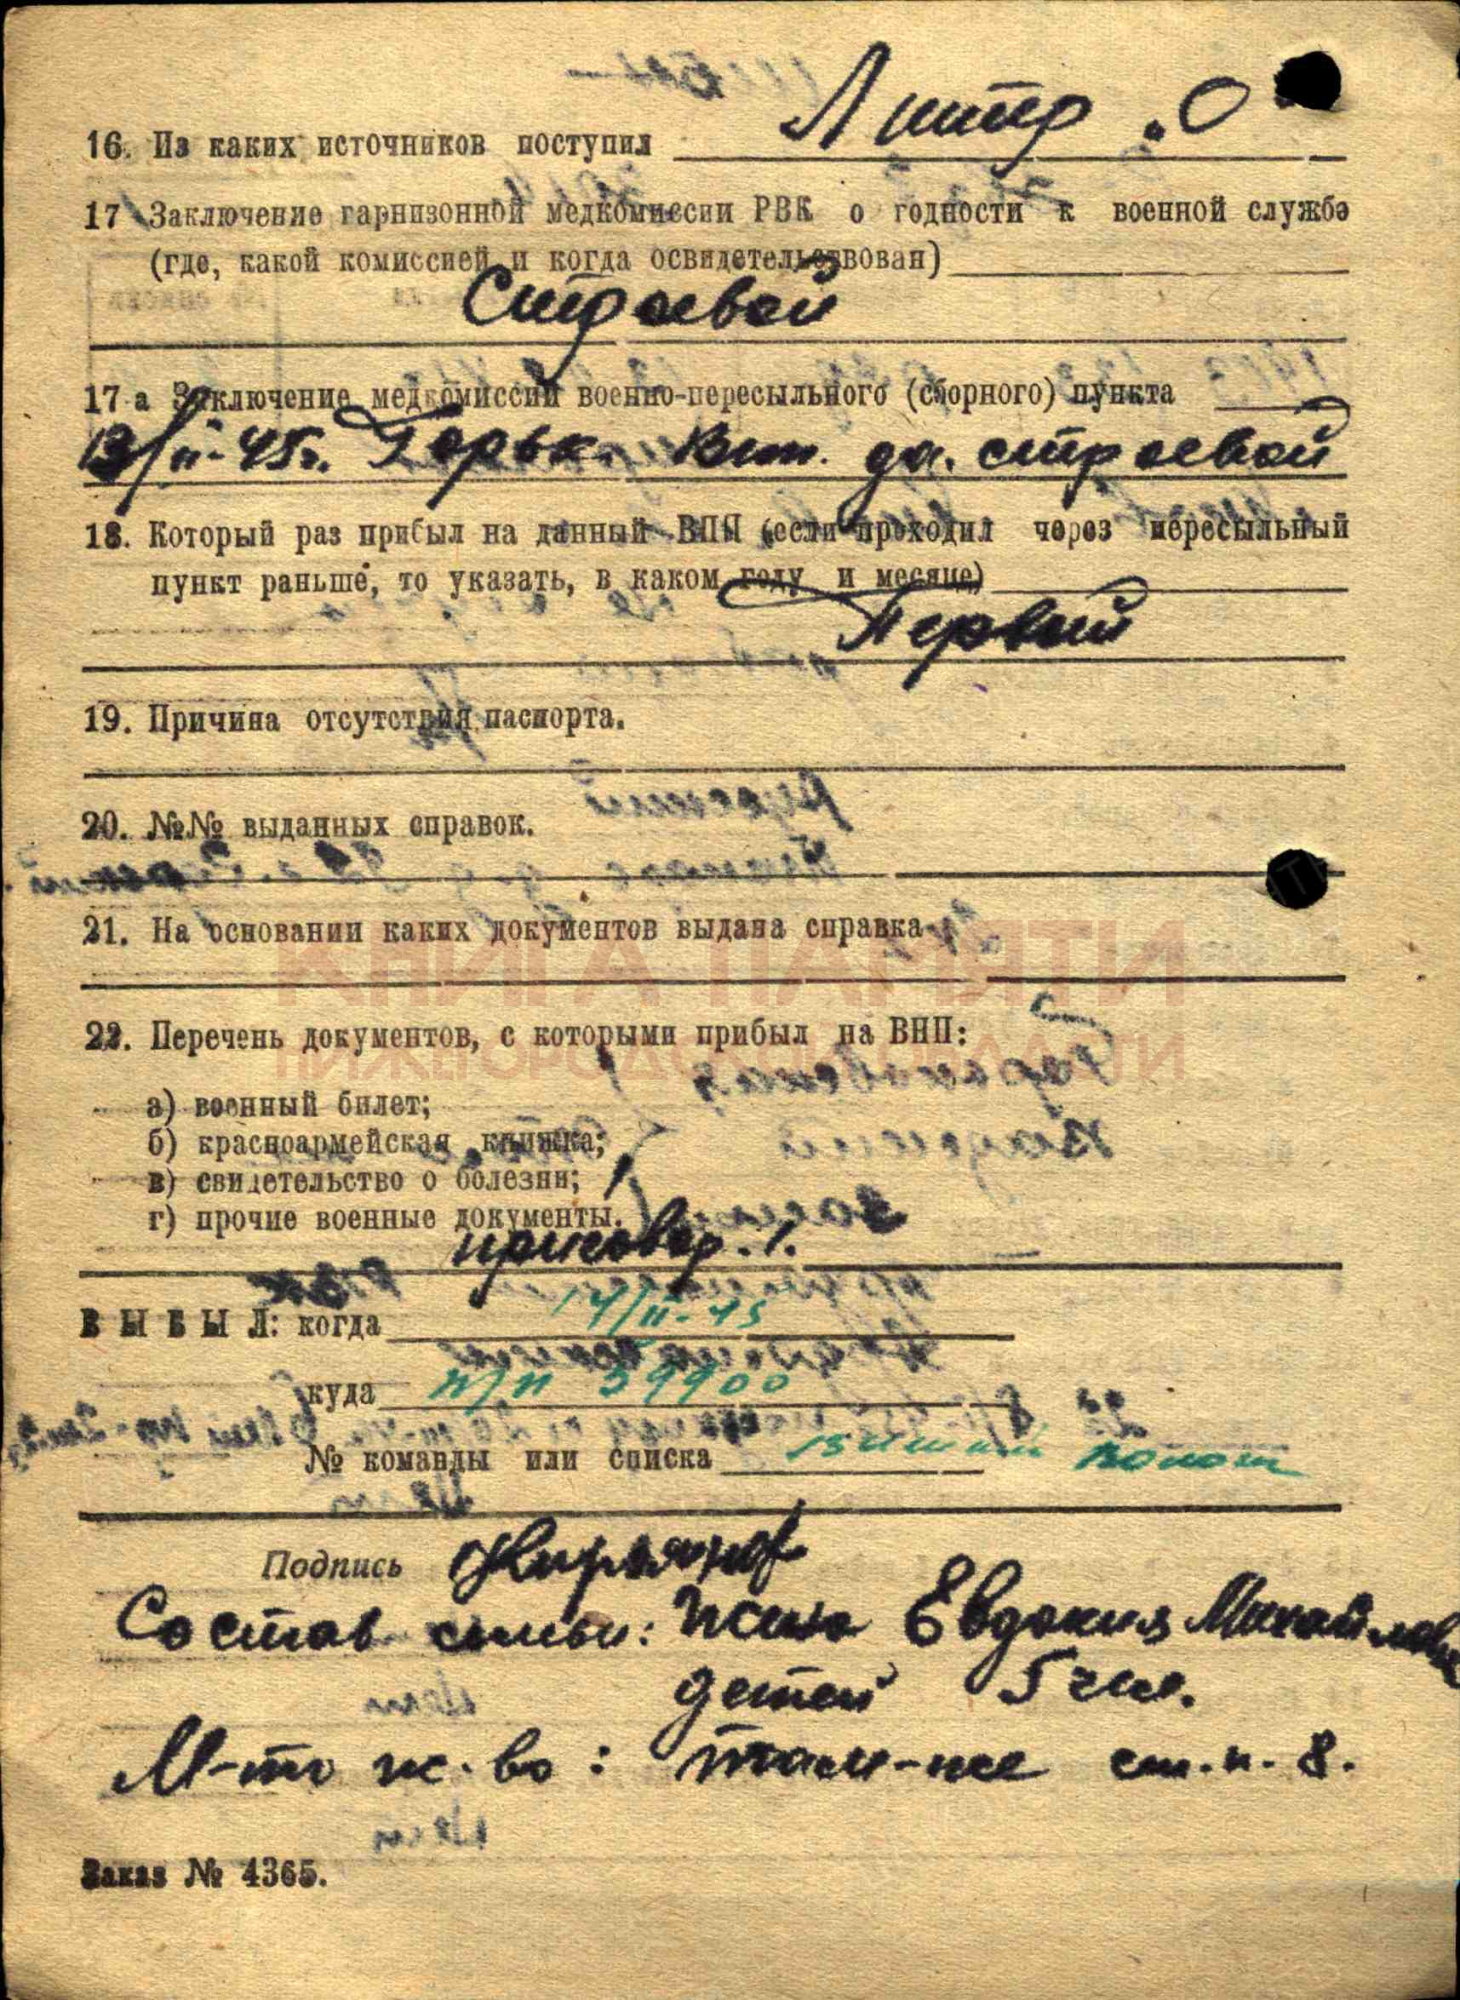 Литер „О"
16. Из каких источников поступил
17 Заключение гарнизонной медкомиссии РВК о годности к военной службе
(где, какой комиссией и когда освидетельствован)
Строевой
17-а Заключение медкомиссии военно-пересыльного (сборного) пункта
13/II-45г. Горьк. Вт. др. строевой
18. Который раз прибыл на данный ВПП (если проходил через пересыльный
пункт раньше, то указать, в каком году и месяце)
Первый
19. Причина отсутствия паспорта.
20. №№ выданных справок.
21. На основании каких документов выдана справка
КНИГА ПАМЯТИ
22. Перечень документов, с которыми прибыл на ВПП:
НИЖЕГОРОДСКОЙ ОБЛАСТИ
а) военный билет;
б) красноармейская книжка;
в) свидетельство о болезни;
г) прочие военные документы.
приговор. 1.
ВЫБЫЛ: когда 14/II-45
куда п/п 39900
№ команды или списка
Подпись
Состав семьи: жена Евдокия Михайловна
детей 5 чел.
М-то ж-во: там-же ст. п. 8.
Заказ № 4365.